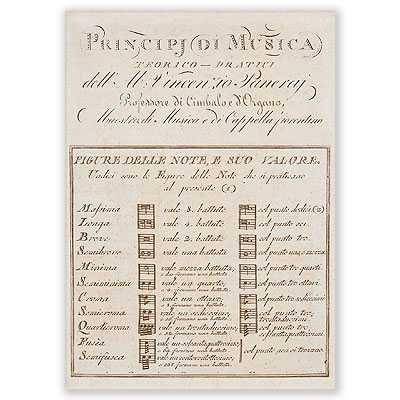 PRINCIPJ DI MUSICA
TEORICO-PRATICI
dell' Ab. Vincenzio Paneraj
Professore di Cimbalo e d'Organo,
Maestro di Musica e di Cappella fiorentino
FIGURE DELLE NOTE, E SUO VALORE.
Undici sono le Figure delle Note che si praticano
al presente (1)
Massima vale 8. battute col punto dodici (2)
Longa vale 4. battute col punto sei.
Breve vale 2. battute col punto tre.
Semibreve vale una battuta col punto una, e mezza.
Minima vale mezza battuta col punto tre quarti.
o 2 formano una battuta
Semiminima vale un quarto, col punto tre ottavi.
o 4 formano una battuta
Croma vale un ottavo, col punto tre sedicesimi
o 8 formano una battuta
Semicroma vale un sedicesimo, col punto tre
o 16 formano una battuta
Quarticroma
Fusia
o 64 formano una battuta
Semifusea
o 128 formano una battuta